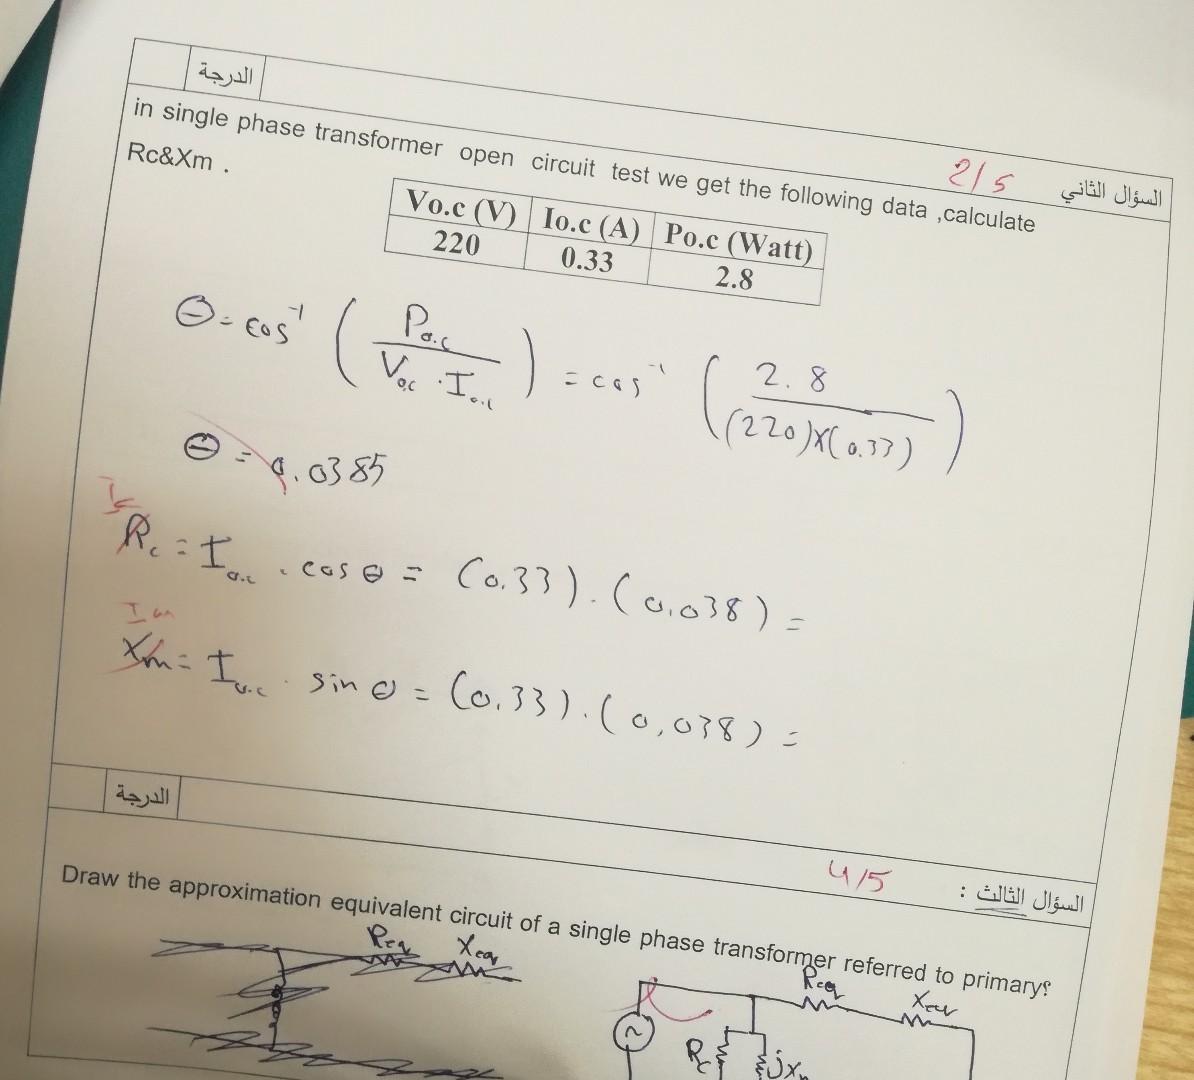 الدرجة
2/5 السؤال الثاني
in single phase transformer open circuit test we get the following data ,calculate
Rc&Xm .
Vo.c (V) Io.c (A) Po.c (Watt)
220 0.33 2.8
Θ = cos⁻¹ ( Po.c / Vo.c · Io.c ) = cos⁻¹ ( 2.8 / (220)X(0.33) )
Θ = 0.0385
Ic
Rc = Io.c . cos Θ = (0.33).(0.038) =
Im
Xm = Io.c . sin Θ = (0.33).(0,038) =
الدرجة
4/5 السؤال الثالث :
Draw the approximation equivalent circuit of a single phase transformer referred to primary?
Req Xeq
Req Xeq
Rc jXm